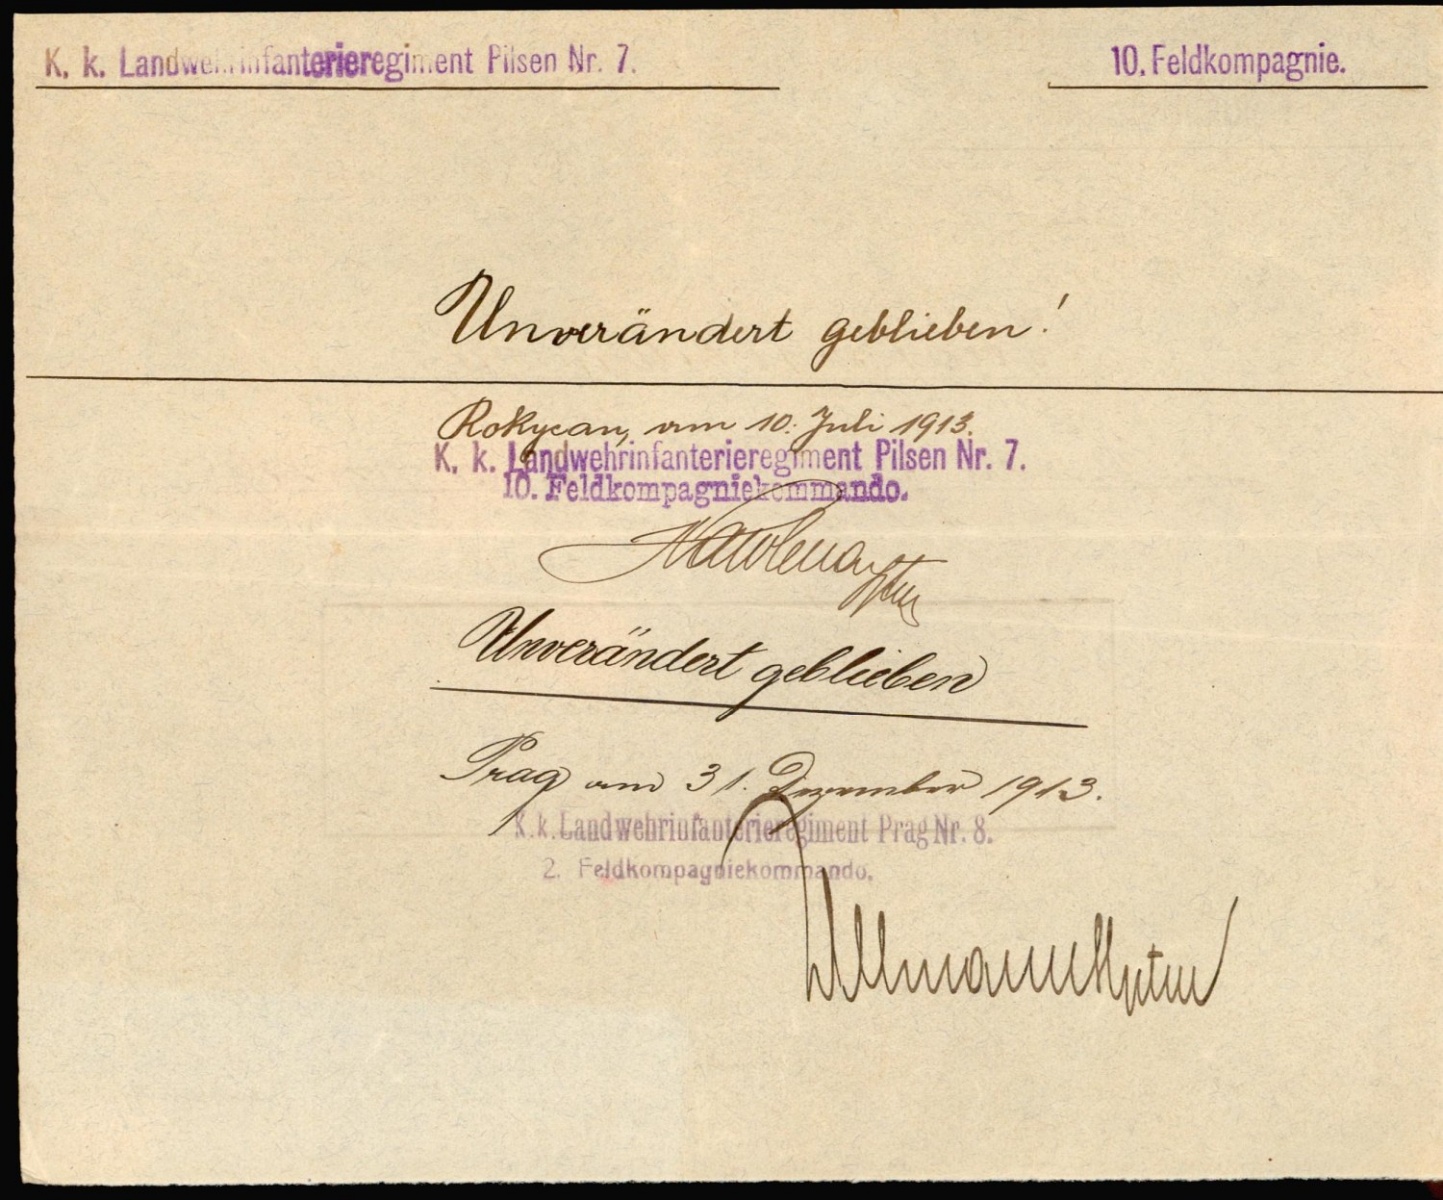 K. k. Landwehrinfanterieregiment Pilsen Nr. 7.
10. Feldkompagnie.
Unverändert geblieben!
Rokycan, am 10. Juli 1913.
K. k. Landwehrinfanterieregiment Pilsen Nr. 7.
10. Feldkompagniekommando.
Unverändert geblieben
Prag am 31. Dezember 1913.
K. k. Landwehrinfanterieregiment Prag Nr. 8.
2. Feldkompagniekommando.